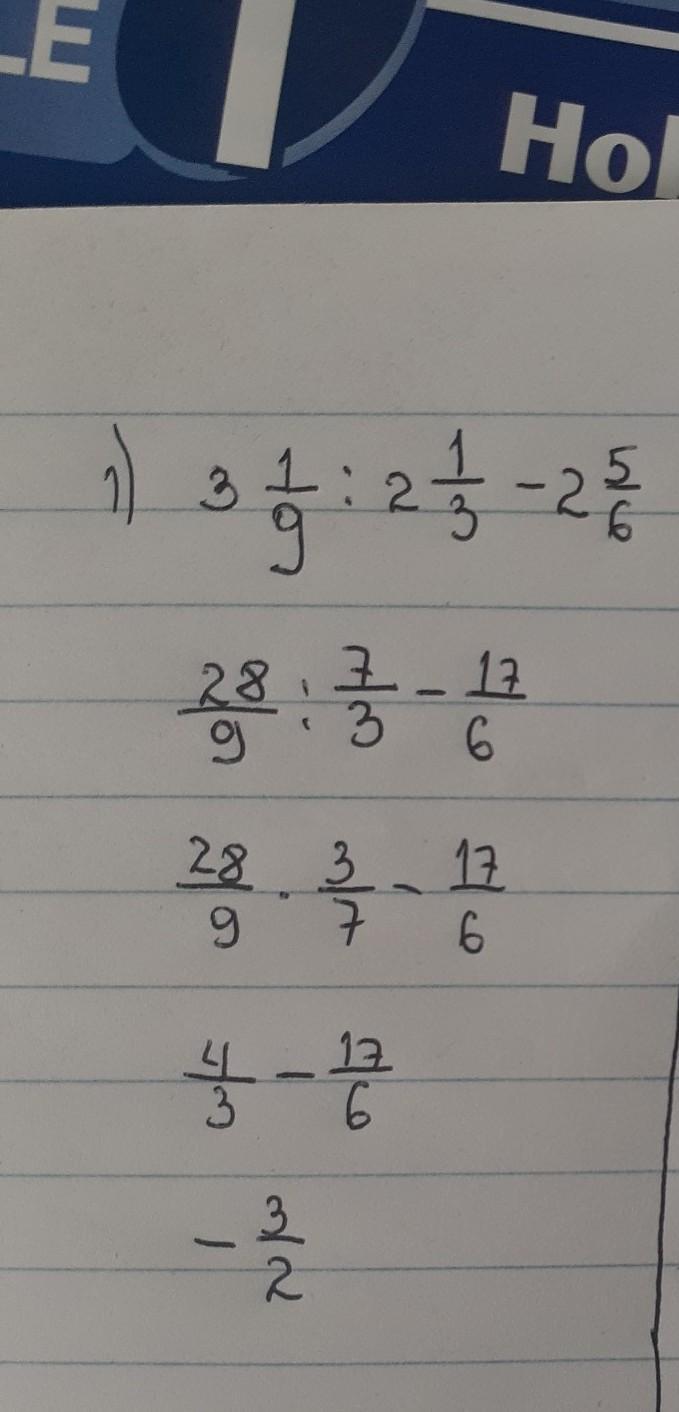 LE
Hol
1) 3 1/9 : 2 1/3 - 2 5/6
28/9 : 7/3 - 17/6
28/9 · 3/7 - 17/6
4/3 - 17/6
- 3/2